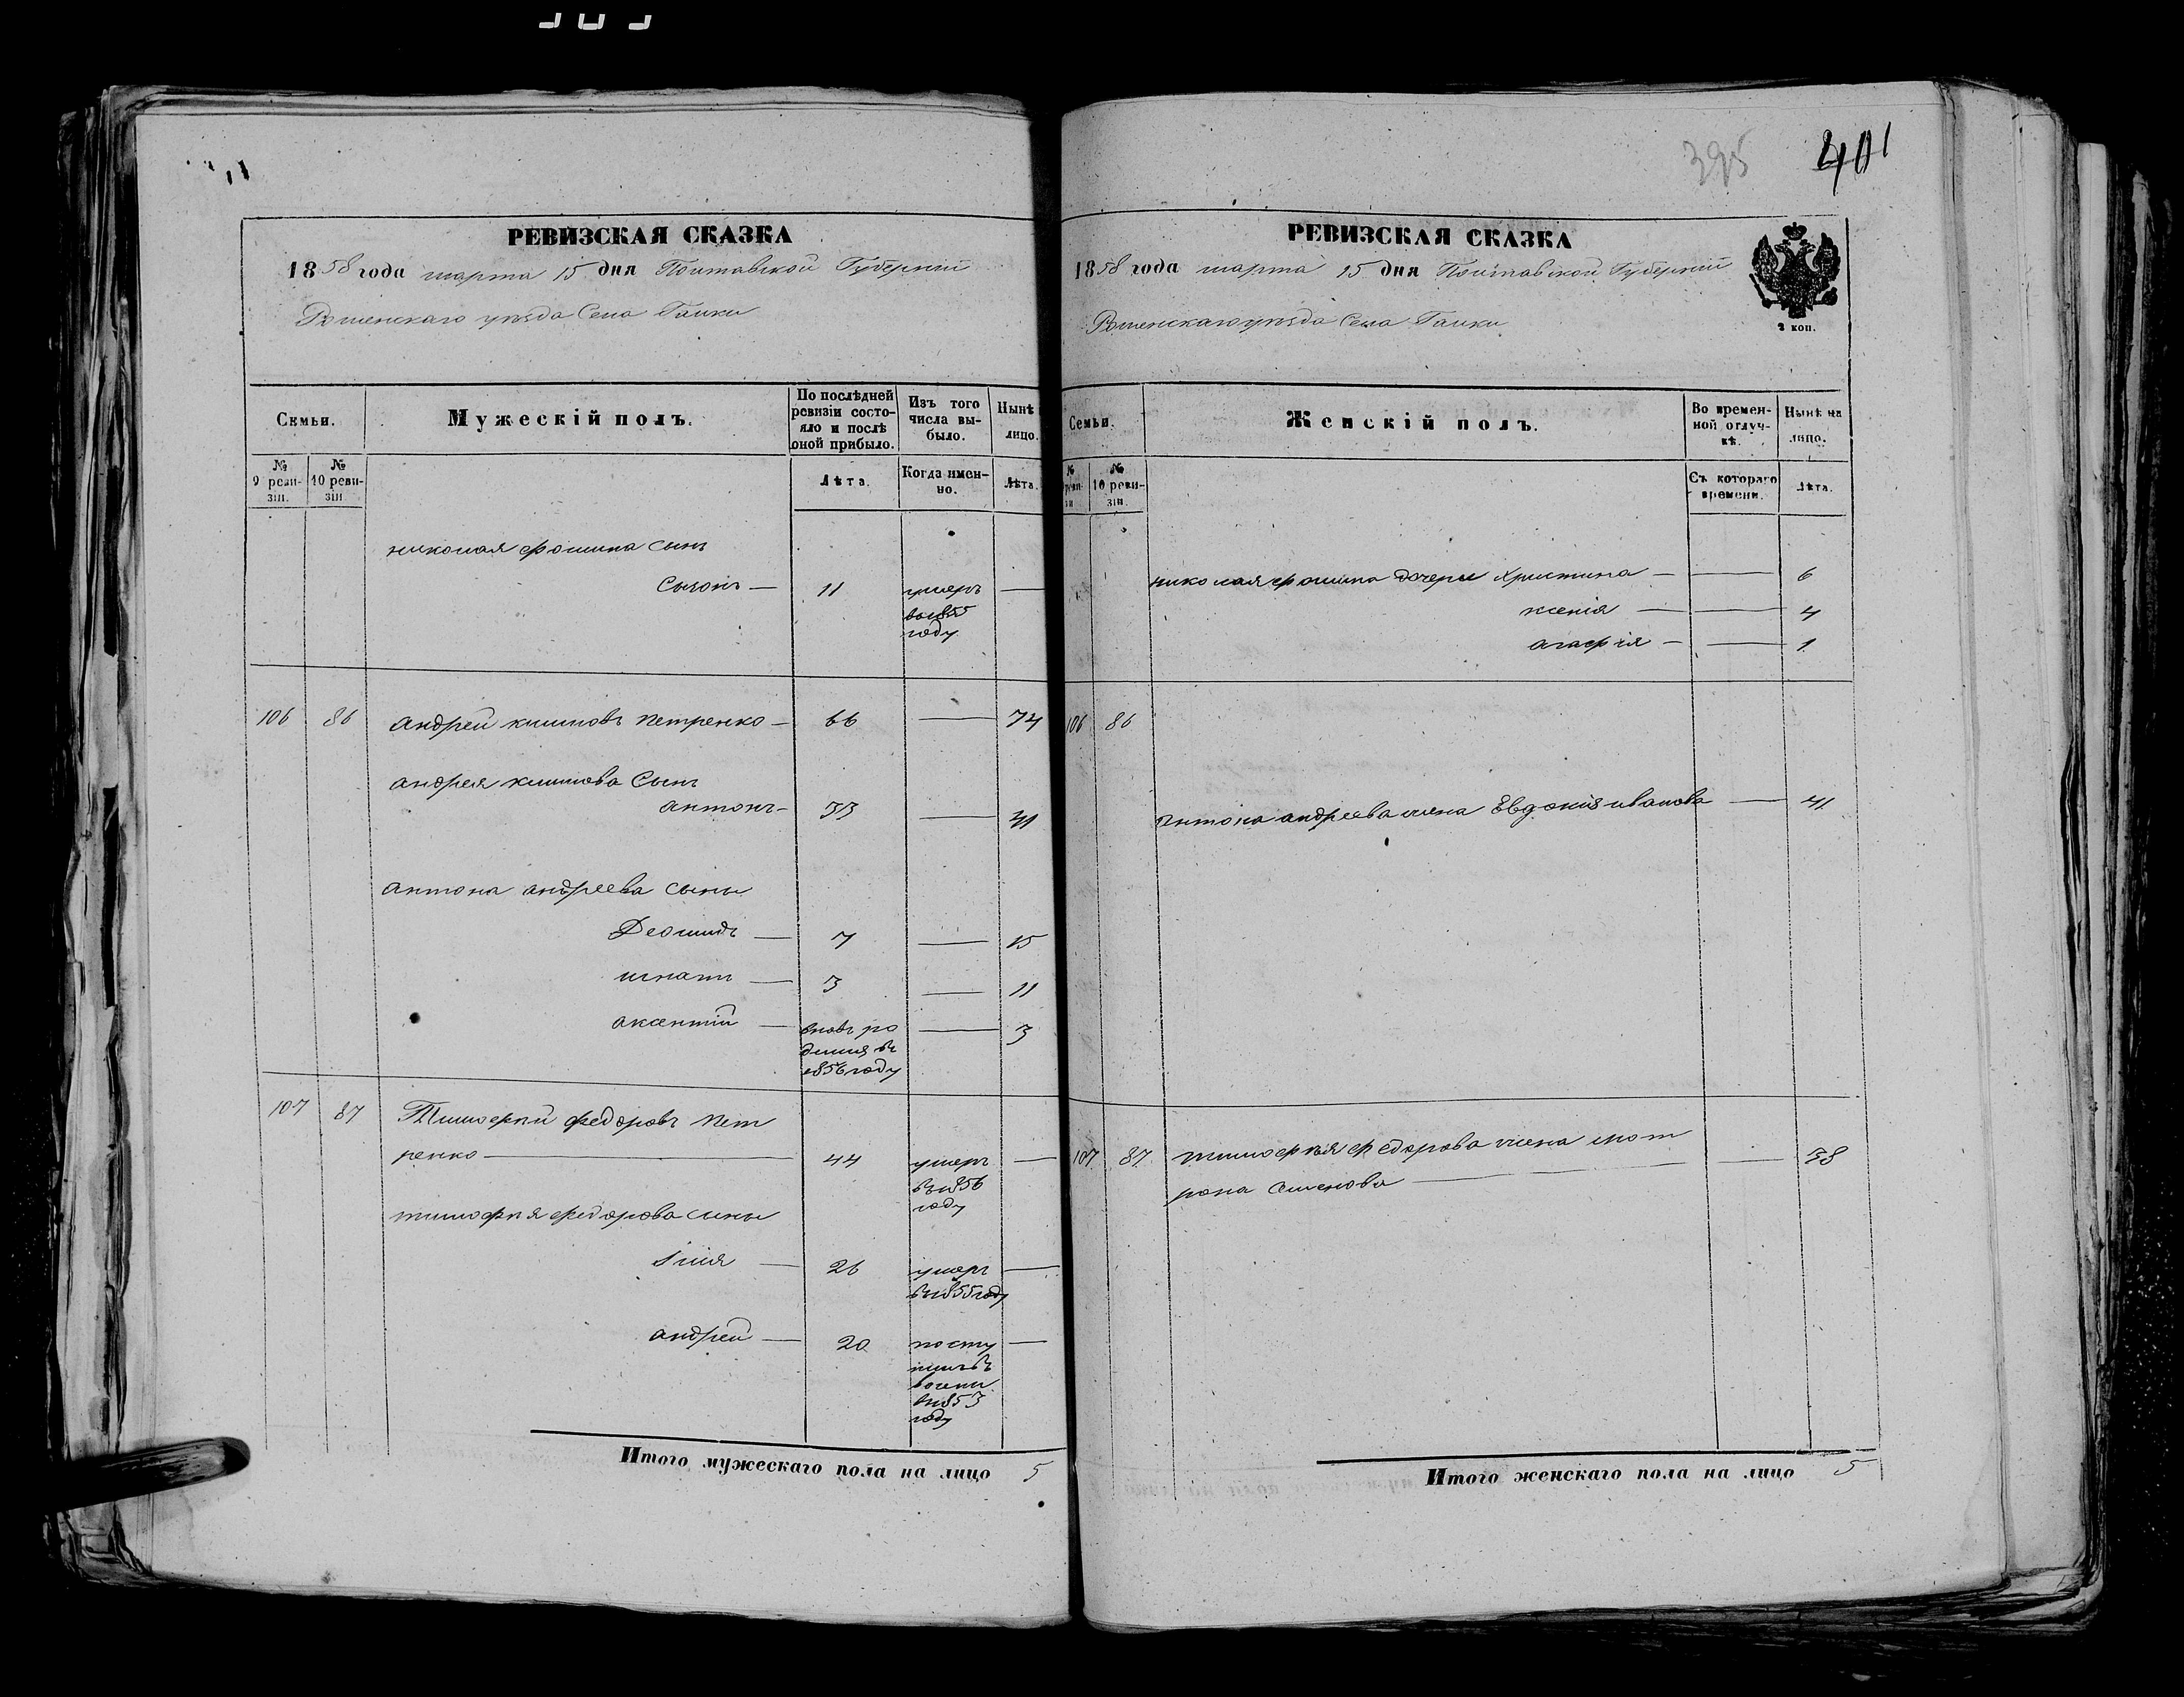 395 401
РЕВИЗСКАЯ СКАЗКА
1858 года марта 15 дня Полтавской Губерній
Роменскаго уѣзда Села Галки
Семьи.
Мужескій полъ.
По послѣдней ревизіи состояло и послѣ оной прибыло.
Изъ того числа выбыло.
Нынѣ лицо.
№ 9 ревизіи.
№ 10 ревизіи.
Лѣта.
Когда именно.
Лѣта.
николая фомина сынъ
11 умеръ
1855
году
106 86 андрей климовъ петренко — 66 — 74
андрея климова Сынъ
антонъ — 33 — 41
антона андреева сыны
Леонидъ — 7 — 15
игнатъ — 3 — 11
аксентій — вновь ро — 3
дился въ
1856 году
107 87 Тимофѣй федоровъ пет
ренко — 44 умеръ —
въ 1856
году
тимофѣя федорова сыны
Илія — 26 умеръ —
въ 1855 году
андрей — 20 посту —
пилъ въ
въ 1853
году
Итого мужескаго пола на лицо 5
РЕВИЗСКАЯ СКАЗКА
1858 года марта 15 дня Полтавской Губерній
Роменскаго уѣзда Села Галки
2 коп.
Семьи.
Женскій полъ.
Во временной отлучкѣ.
Нынѣ на лицо.
№ 10 ревизіи.
Съ котораго времени.
Лѣта.
николая фомина дочери Христина — — 6
ксенія — — 4
агафія — — 1
106 86
Антона андреева жена Евдокія иванова — 41
107 87 тимофѣя федорова жена мот — 38
рона Семенова —
Итого женскаго пола на лицо 5